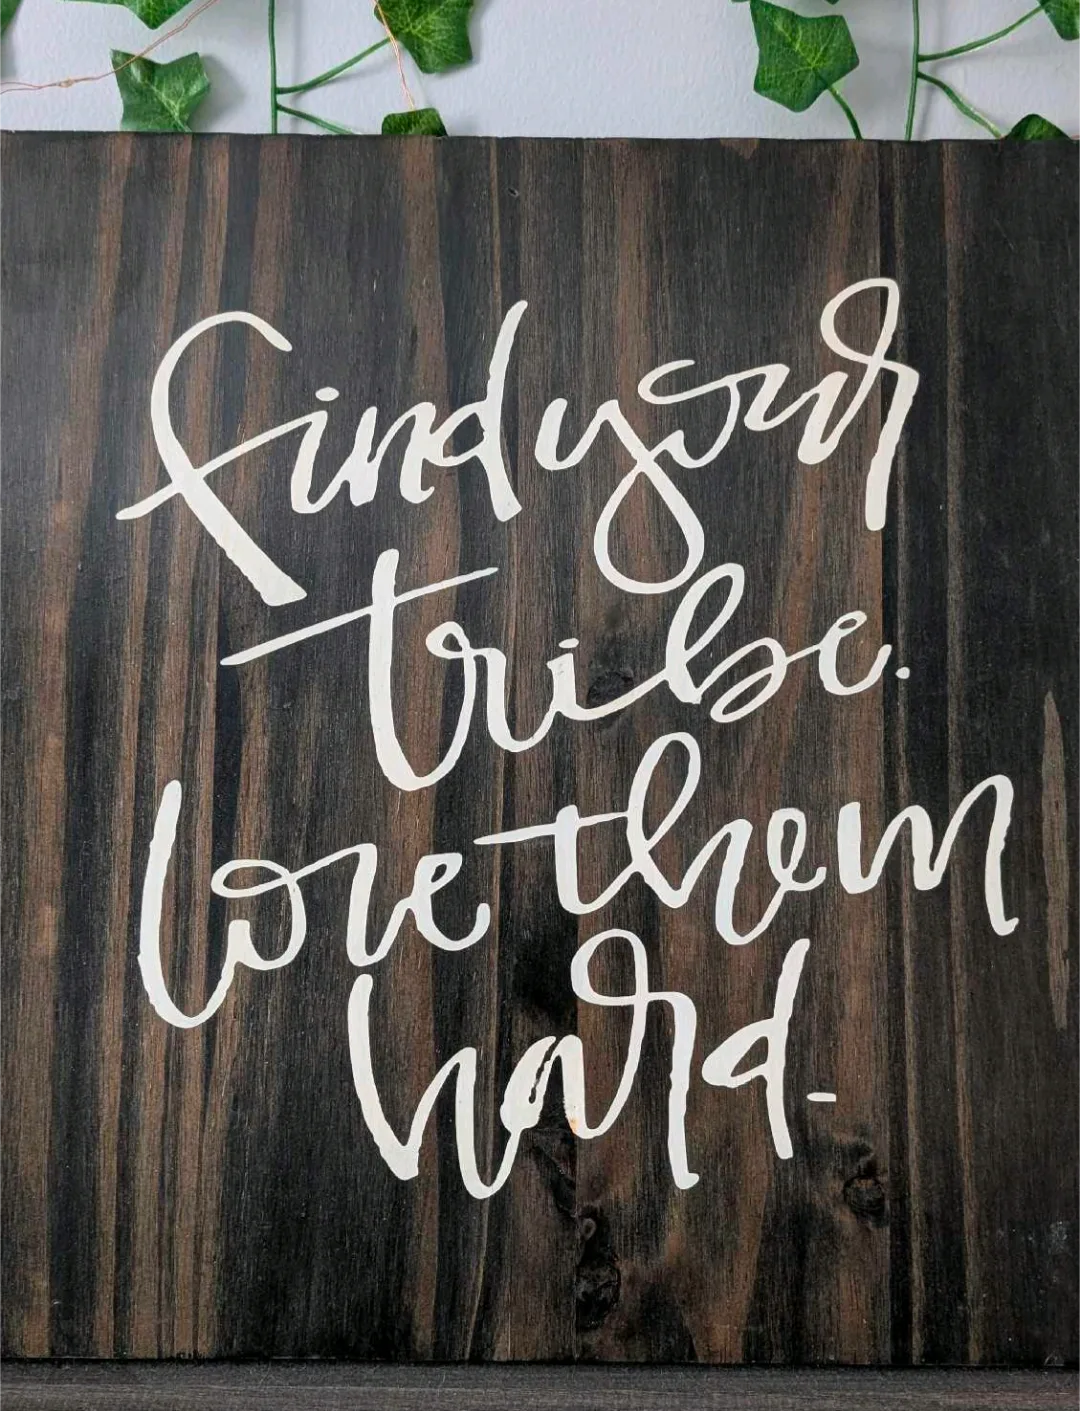 find your
tribe.
love them
hard-